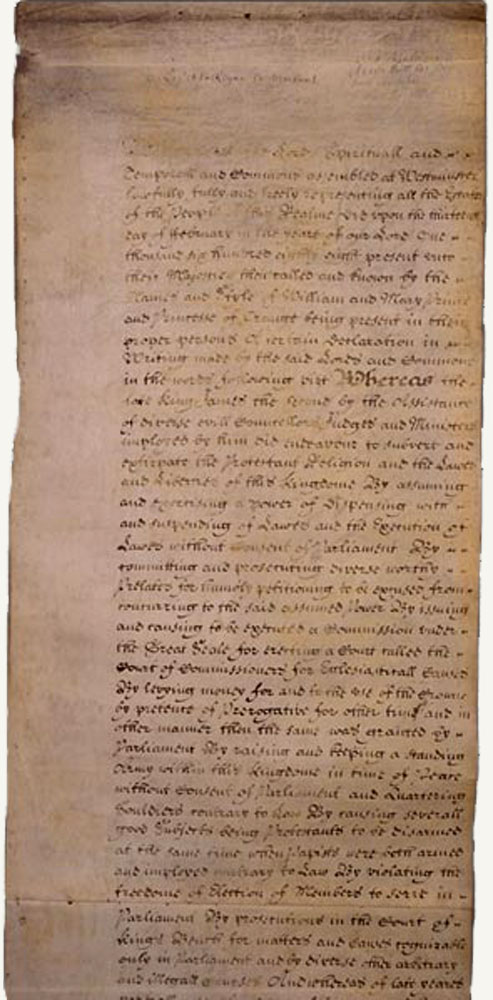 Lords Spirituall and
Temporall and Commons assembled at Westminster
lawfully fully and freely representing all the Estates
of the People of this Realme did upon the thirteenth
day of February in the yeare of our Lord One
thousand six hundred eighty eight present unto
their Majesties then called and known by the
Names and Stile of William and Mary Prince
and Princesse of Orange being present in their
proper persons A certain Declaration in
Writing made by the said Lords and Commons
in the words following vizt Whereas the
late King James the second by the Assistance
of diverse evill Councellors Judges and Ministers
imployed by him did endeavour to subvert and
extirpate the Protestant Religion and the Lawes
and Liberties of this Kingdome By assuming
and exercising a power of Dispensing with
and suspending of Lawes and the Execution of
Lawes without Consent of Parliament By
committing and prosecuting diverse worthy
Prelates for humbly petitioning to be excused from
concurring to the said assumed Power By issuing
and causing to be executed a Commission under
the Great Seale for erecting a Court called the
Court of Commissioners for Ecclesiasticall Causes
By levying money for and to the use of the Crowne
by pretence of Prerogative for other time and in
other manner then the same was granted by
Parliament By raising and keeping a standing
Army within this Kingdome in time of Peace
without Consent of Parliament and Quartering
Souldiers contrary to Law By causing severall
good Subjects being Protestants to be disarmed
at the same time when Papists were both armed
and imployed contrary to Law By violating the
freedome of Election of Members to serve in
Parliament By prosecutions in the Court of
Kings Bench for matters and Causes cognizable
only in Parliament and by diverse other arbitrary
and illegall Courses And whereas of late yeares